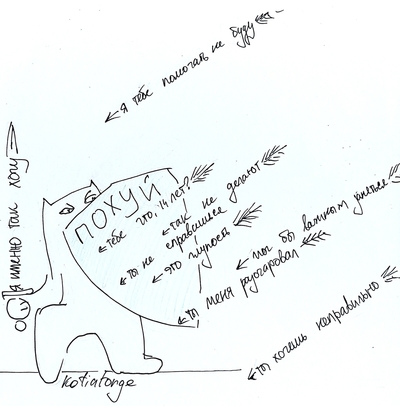 я тебе помогать не буду
я именно так хочу
ПОХУЙ
тебе что, 14 лет?
так не делают
ты не справишься
это глупость
мог бы ватником уняться
ты меня разочаровал
ты хочешь неправильно
kotialonge